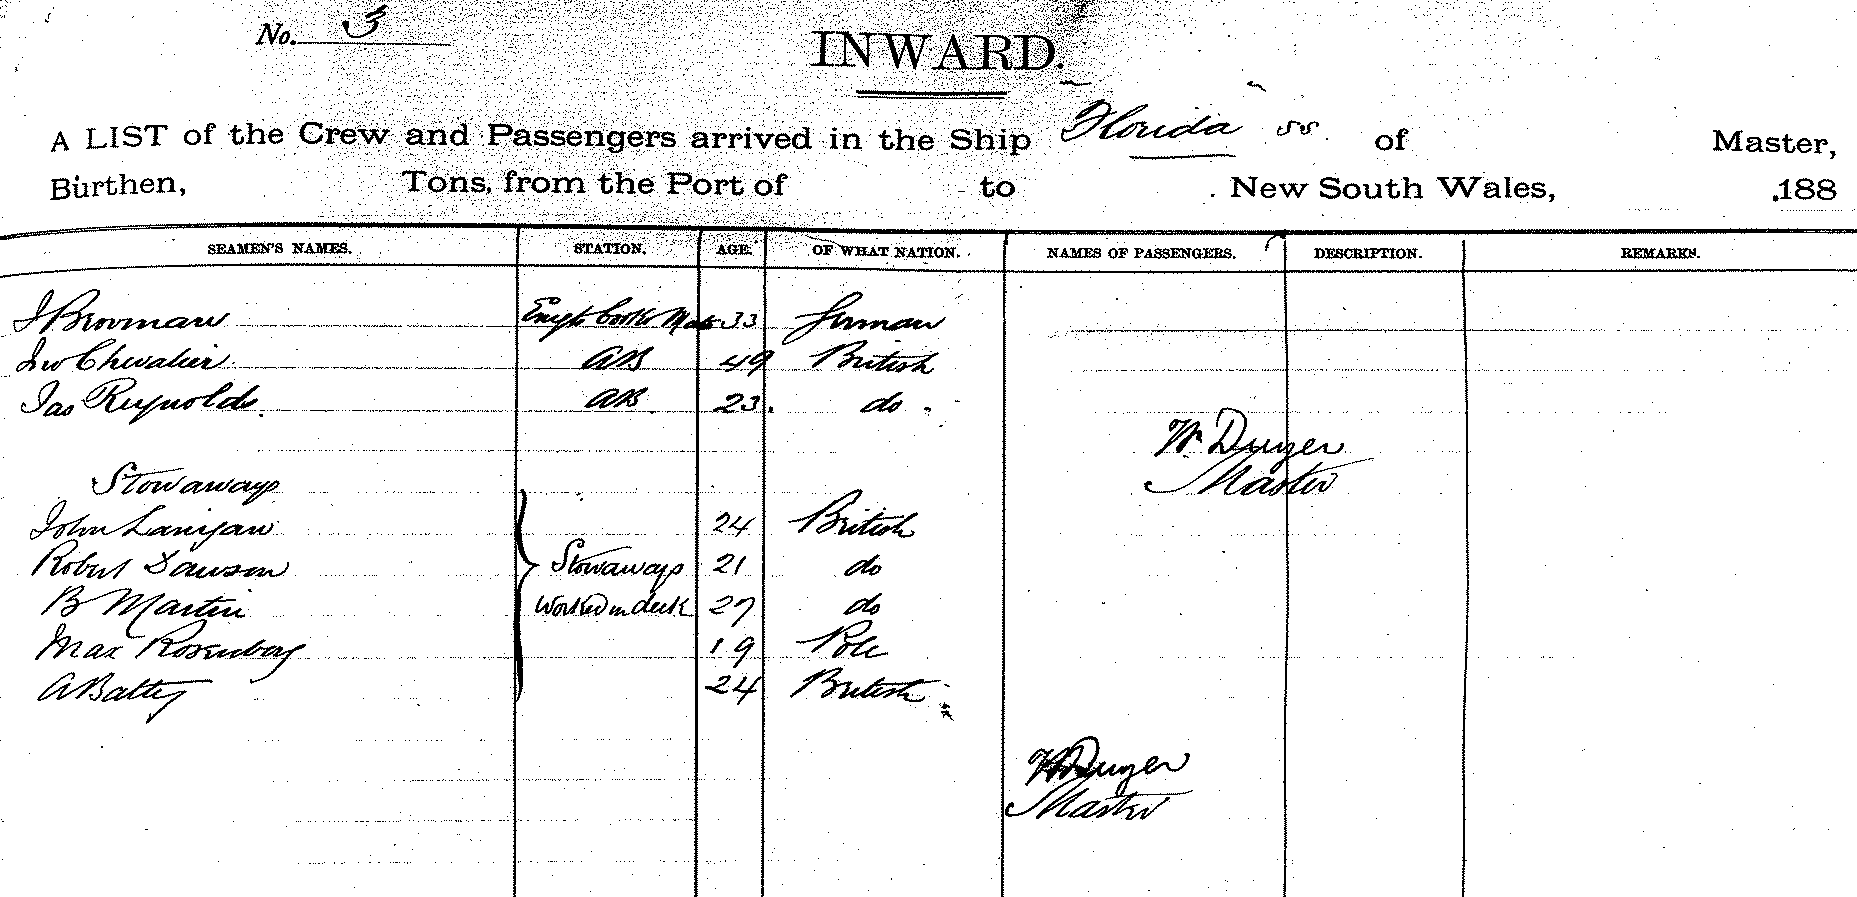 No. 3
INWARD.
A LIST of the Crew and Passengers arrived in the Ship Florida ss. of Master,
Burthen, Tons, from the Port of to New South Wales, 188
SEAMEN'S NAMES. STATION. AGE. OF WHAT NATION. NAMES OF PASSENGERS. DESCRIPTION. REMARKS.
J Brovman Cooks Mate 33 German
Jno Chevalier AB 49 British
Jas Reynolds. AB 23. do.
W. Dwyer
Master
Stowaways
John Lanigan 24 British
Robert Dawson Stowaways 21 do
B Martin worked on deck 27 do
Max Rosenberg 19 Pole
A Battey 24 British
W Dwyer
Master